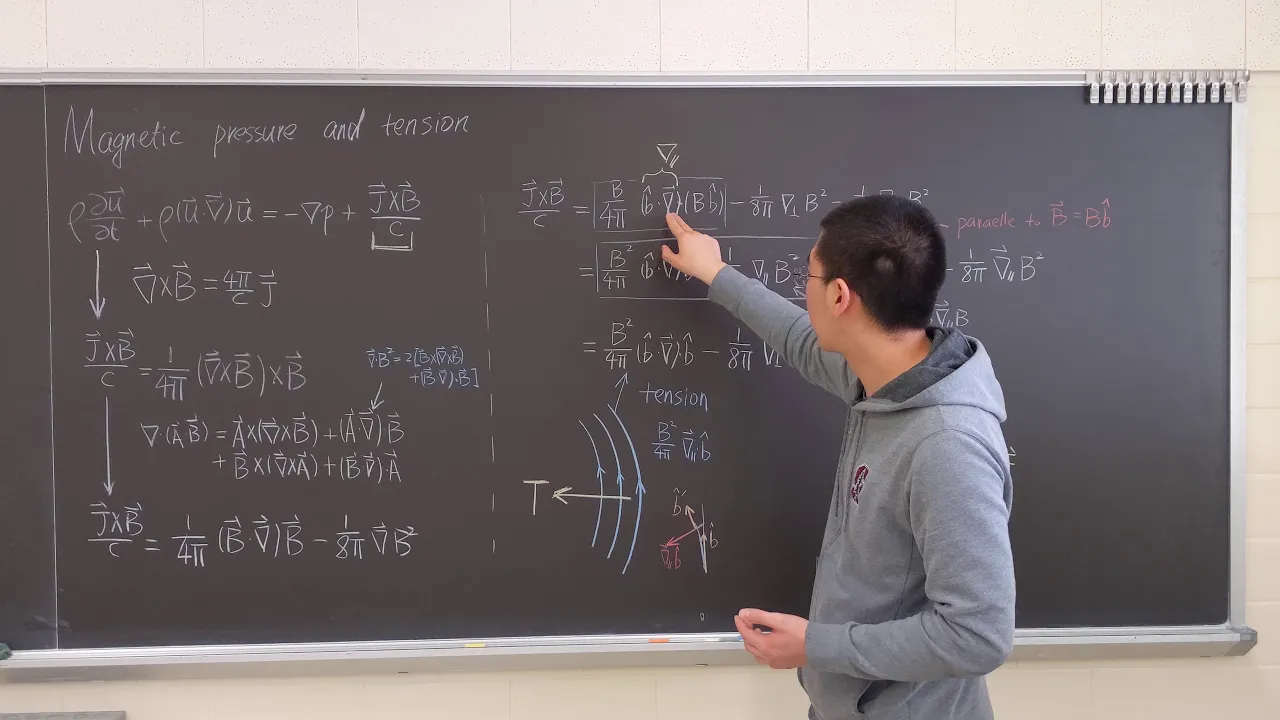 Magnetic pressure and tension
ρ ∂u⃗/∂t + ρ(u⃗·∇⃗)u⃗ = -∇p + J⃗×B⃗/C
∇⃗×B⃗ = 4π/C J⃗
J⃗×B⃗/C = 1/4π (∇⃗×B⃗)×B⃗
∇B² = 2[B⃗×(∇×B⃗)
+(B⃗·∇)·B⃗]
∇·(A⃗·B⃗) = A⃗×(∇⃗×B⃗)+(A⃗·∇⃗)B⃗
+ B⃗×(∇⃗×A⃗)+(B⃗·∇⃗)·A⃗
J⃗×B⃗/C = 1/4π (B⃗·∇⃗)B⃗ - 1/8π ∇⃗B²
∇⃗∥
J⃗×B⃗/C = B/4π (b̂·∇⃗)(Bb̂) - 1/8π ∇⊥B² -
B²
paraelle to B⃗ = Bb̂
= B²/4π (b̂·∇⃗)
∇∥B²
- 1/8π ∇⃗∥B²
∇⃗∥B
= B²/4π (b̂·∇⃗)·b̂ - 1/8π
tension
B²/4π ∇⃗∥b̂
T
b̂'
b̂
∇⃗∥b̂